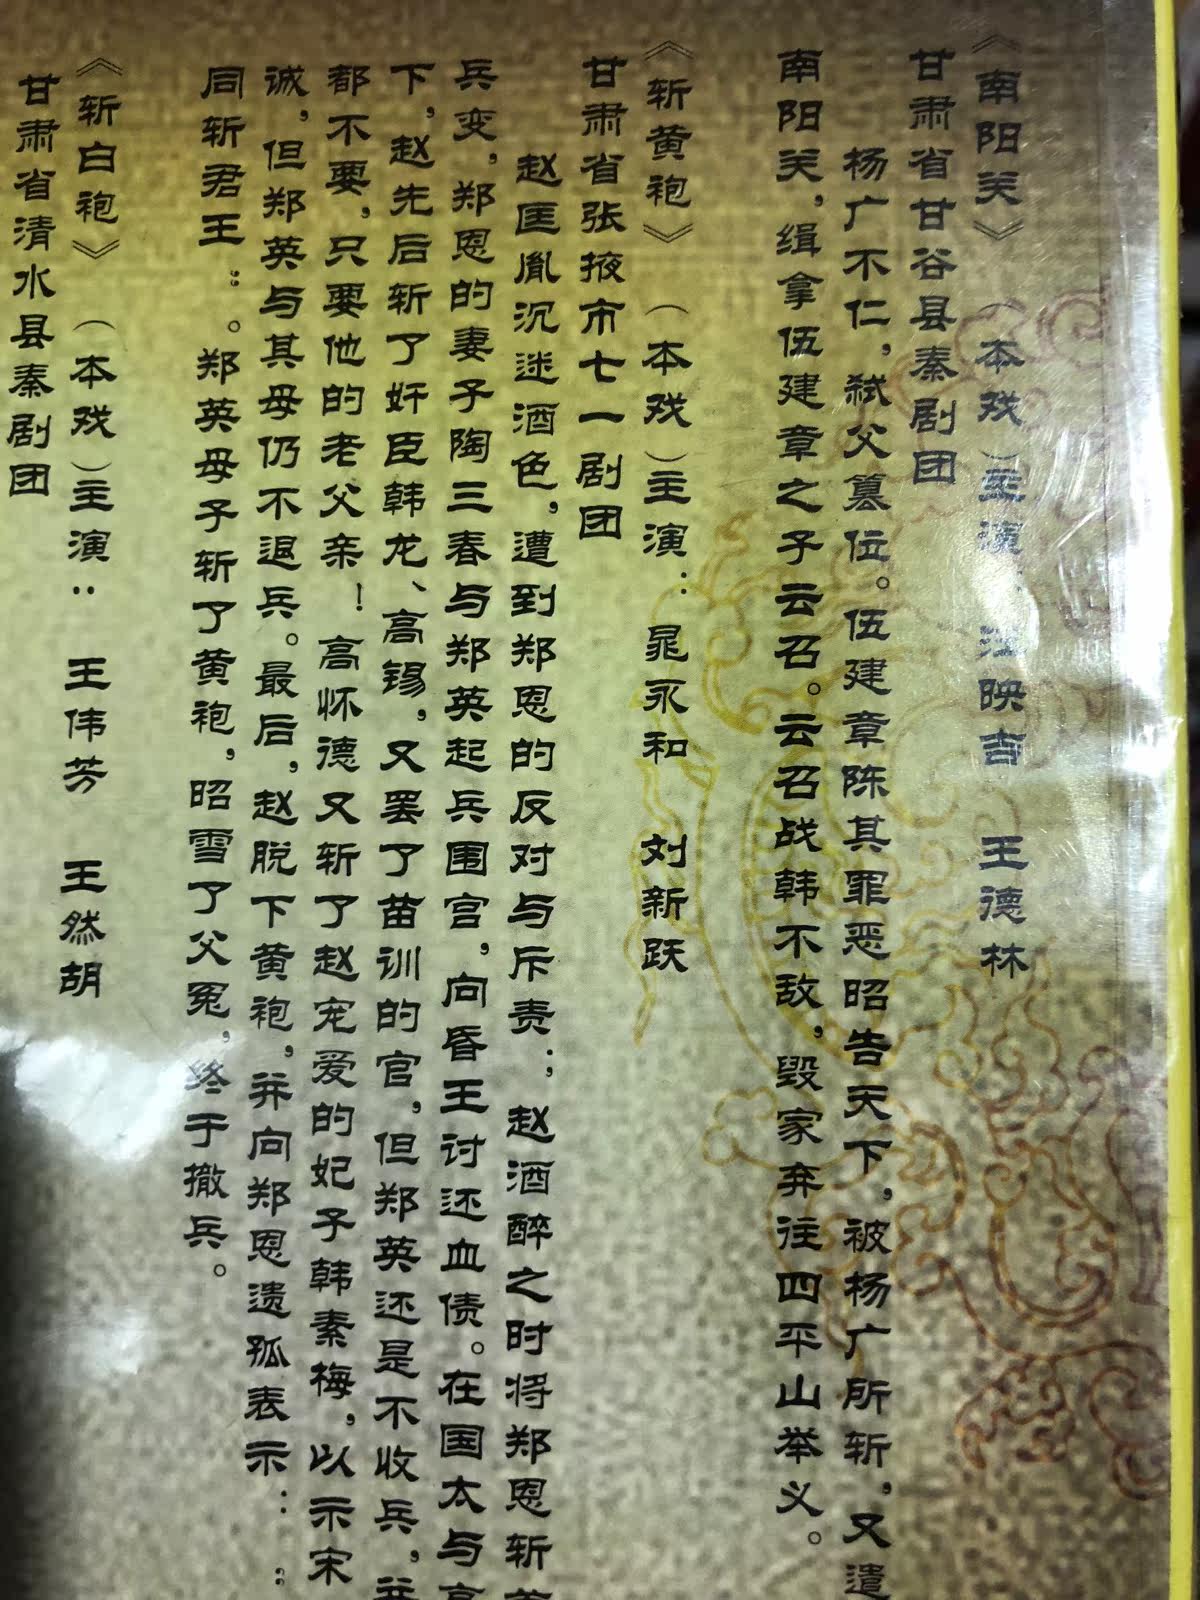 《南阳关》 （本戏）主演：汪映吉 王德林
甘肃省甘谷县秦剧团
杨广不仁，弑父篡位。伍建章陈其罪恶昭告天下，被杨广所斩，又遣
南阳关，缉拿伍建章之子云召。云召战韩不敌，毁家弃往四平山举义。
《斩黄袍》 （本戏）主演：晁永和 刘新跃
甘肃省张掖市七一剧团
赵匡胤沉迷酒色，遭到郑恩的反对与斥责；赵酒醉之时将郑恩斩首
兵变，郑恩的妻子陶三春与郑英起兵围宫，向昏王讨还血债。在国太与高
下，赵先后斩了奸臣韩龙、高锡，又罢了苗训的官，但郑英还是不收兵，并
都不要，只要他的老父亲！高怀德又斩了赵宠爱的妃子韩素梅，以示宋
诚，但郑英与其母仍不退兵。最后，赵脱下黄袍，并向郑恩遗孤表示：“
同斩君王”。郑英母子斩了黄袍，昭雪了父冤，终于撤兵。
《斩白袍》 （本戏）主演：王伟芳 王然胡
甘肃省清水县秦剧团